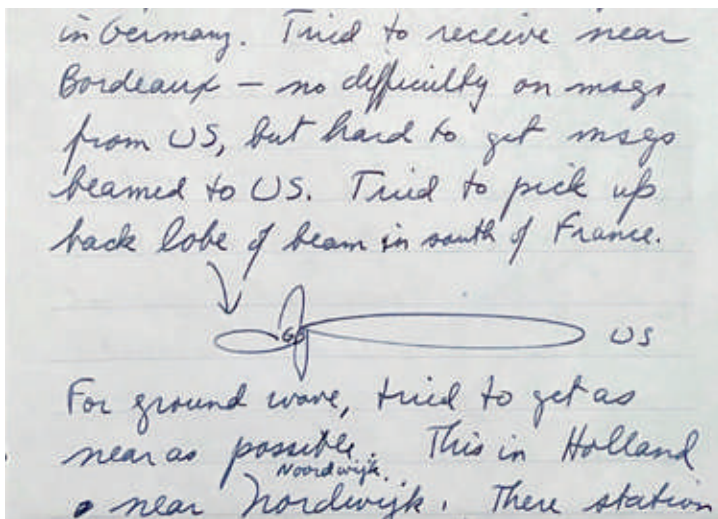 in Germany. Tried to receive near
Bordeaux – no difficulty on msgs
from US, but hard to get msgs
beamed to US. Tried to pick up
back lobe of beam in south of France.
GB US
For ground wave, tried to get as
near as possible. This in Holland
Noordwijk.
near Nordwijk. There station